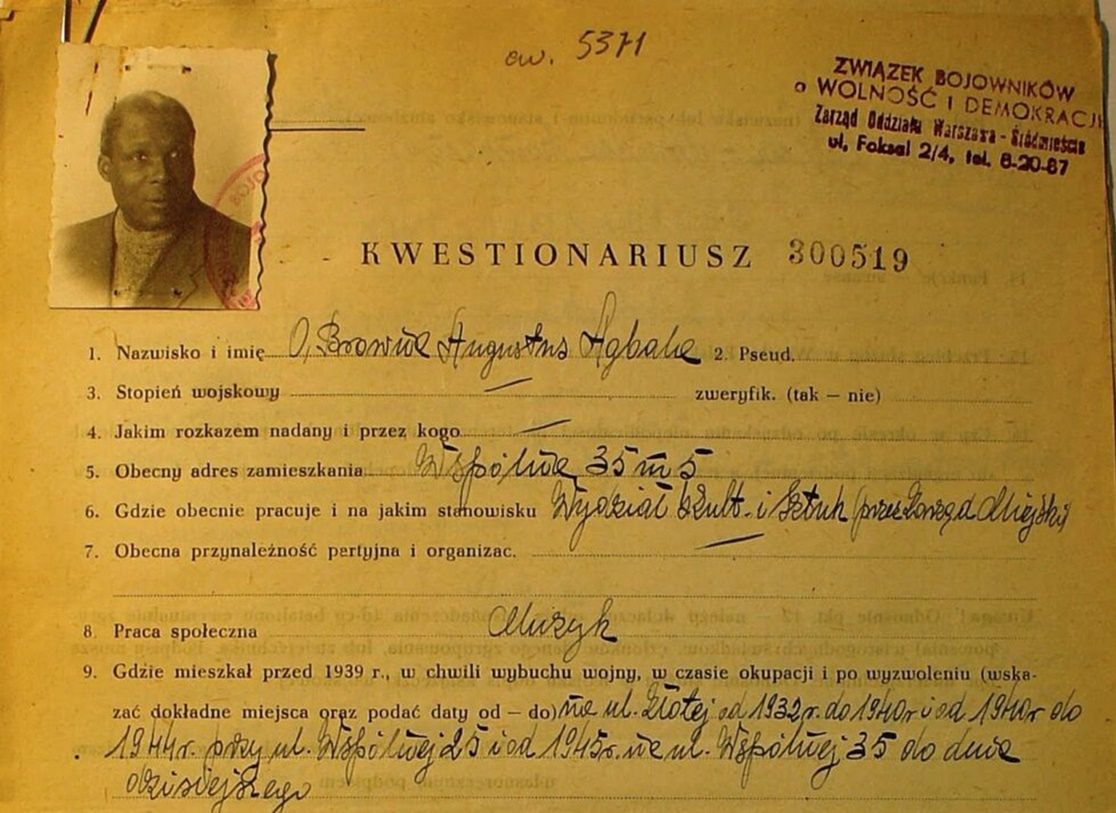 ew. 5371
ZWIĄZEK BOJOWNIKÓW
o WOLNOŚĆ I DEMOKRACJĘ
Zarząd Oddziału Warszawa - Śródmieście
ul. Foksal 2/4, tel. 8-20-87
KWESTIONARIUSZ 300519
1. Nazwisko i imię O, Browne Augustus Agbale 2. Pseud.
3. Stopień wojskowy — zweryfik. (tak — nie)
4. Jakim rozkazem nadany i przez kogo —
5. Obecny adres zamieszkania Wspólna 35 m 5
6. Gdzie obecnie pracuje i na jakim stanowisku Wydział Kult. i Sztuk (przez Zarząd Miejski)
7. Obecna przynależność partyjna i organizac. —
8. Praca społeczna Muzyk
9. Gdzie mieszkał przed 1939 r., w chwili wybuchu wojny, w czasie okupacji i po wyzwoleniu (wska-
zać dokładne miejsca oraz podać daty od — do) na ul. Złotej od 1932r. do 1940r i od 1940r do
1944r. przy ul. Wspólnej 25 i od 1945r. na ul. Wspólnej 35 do dnia
dzisiejszego